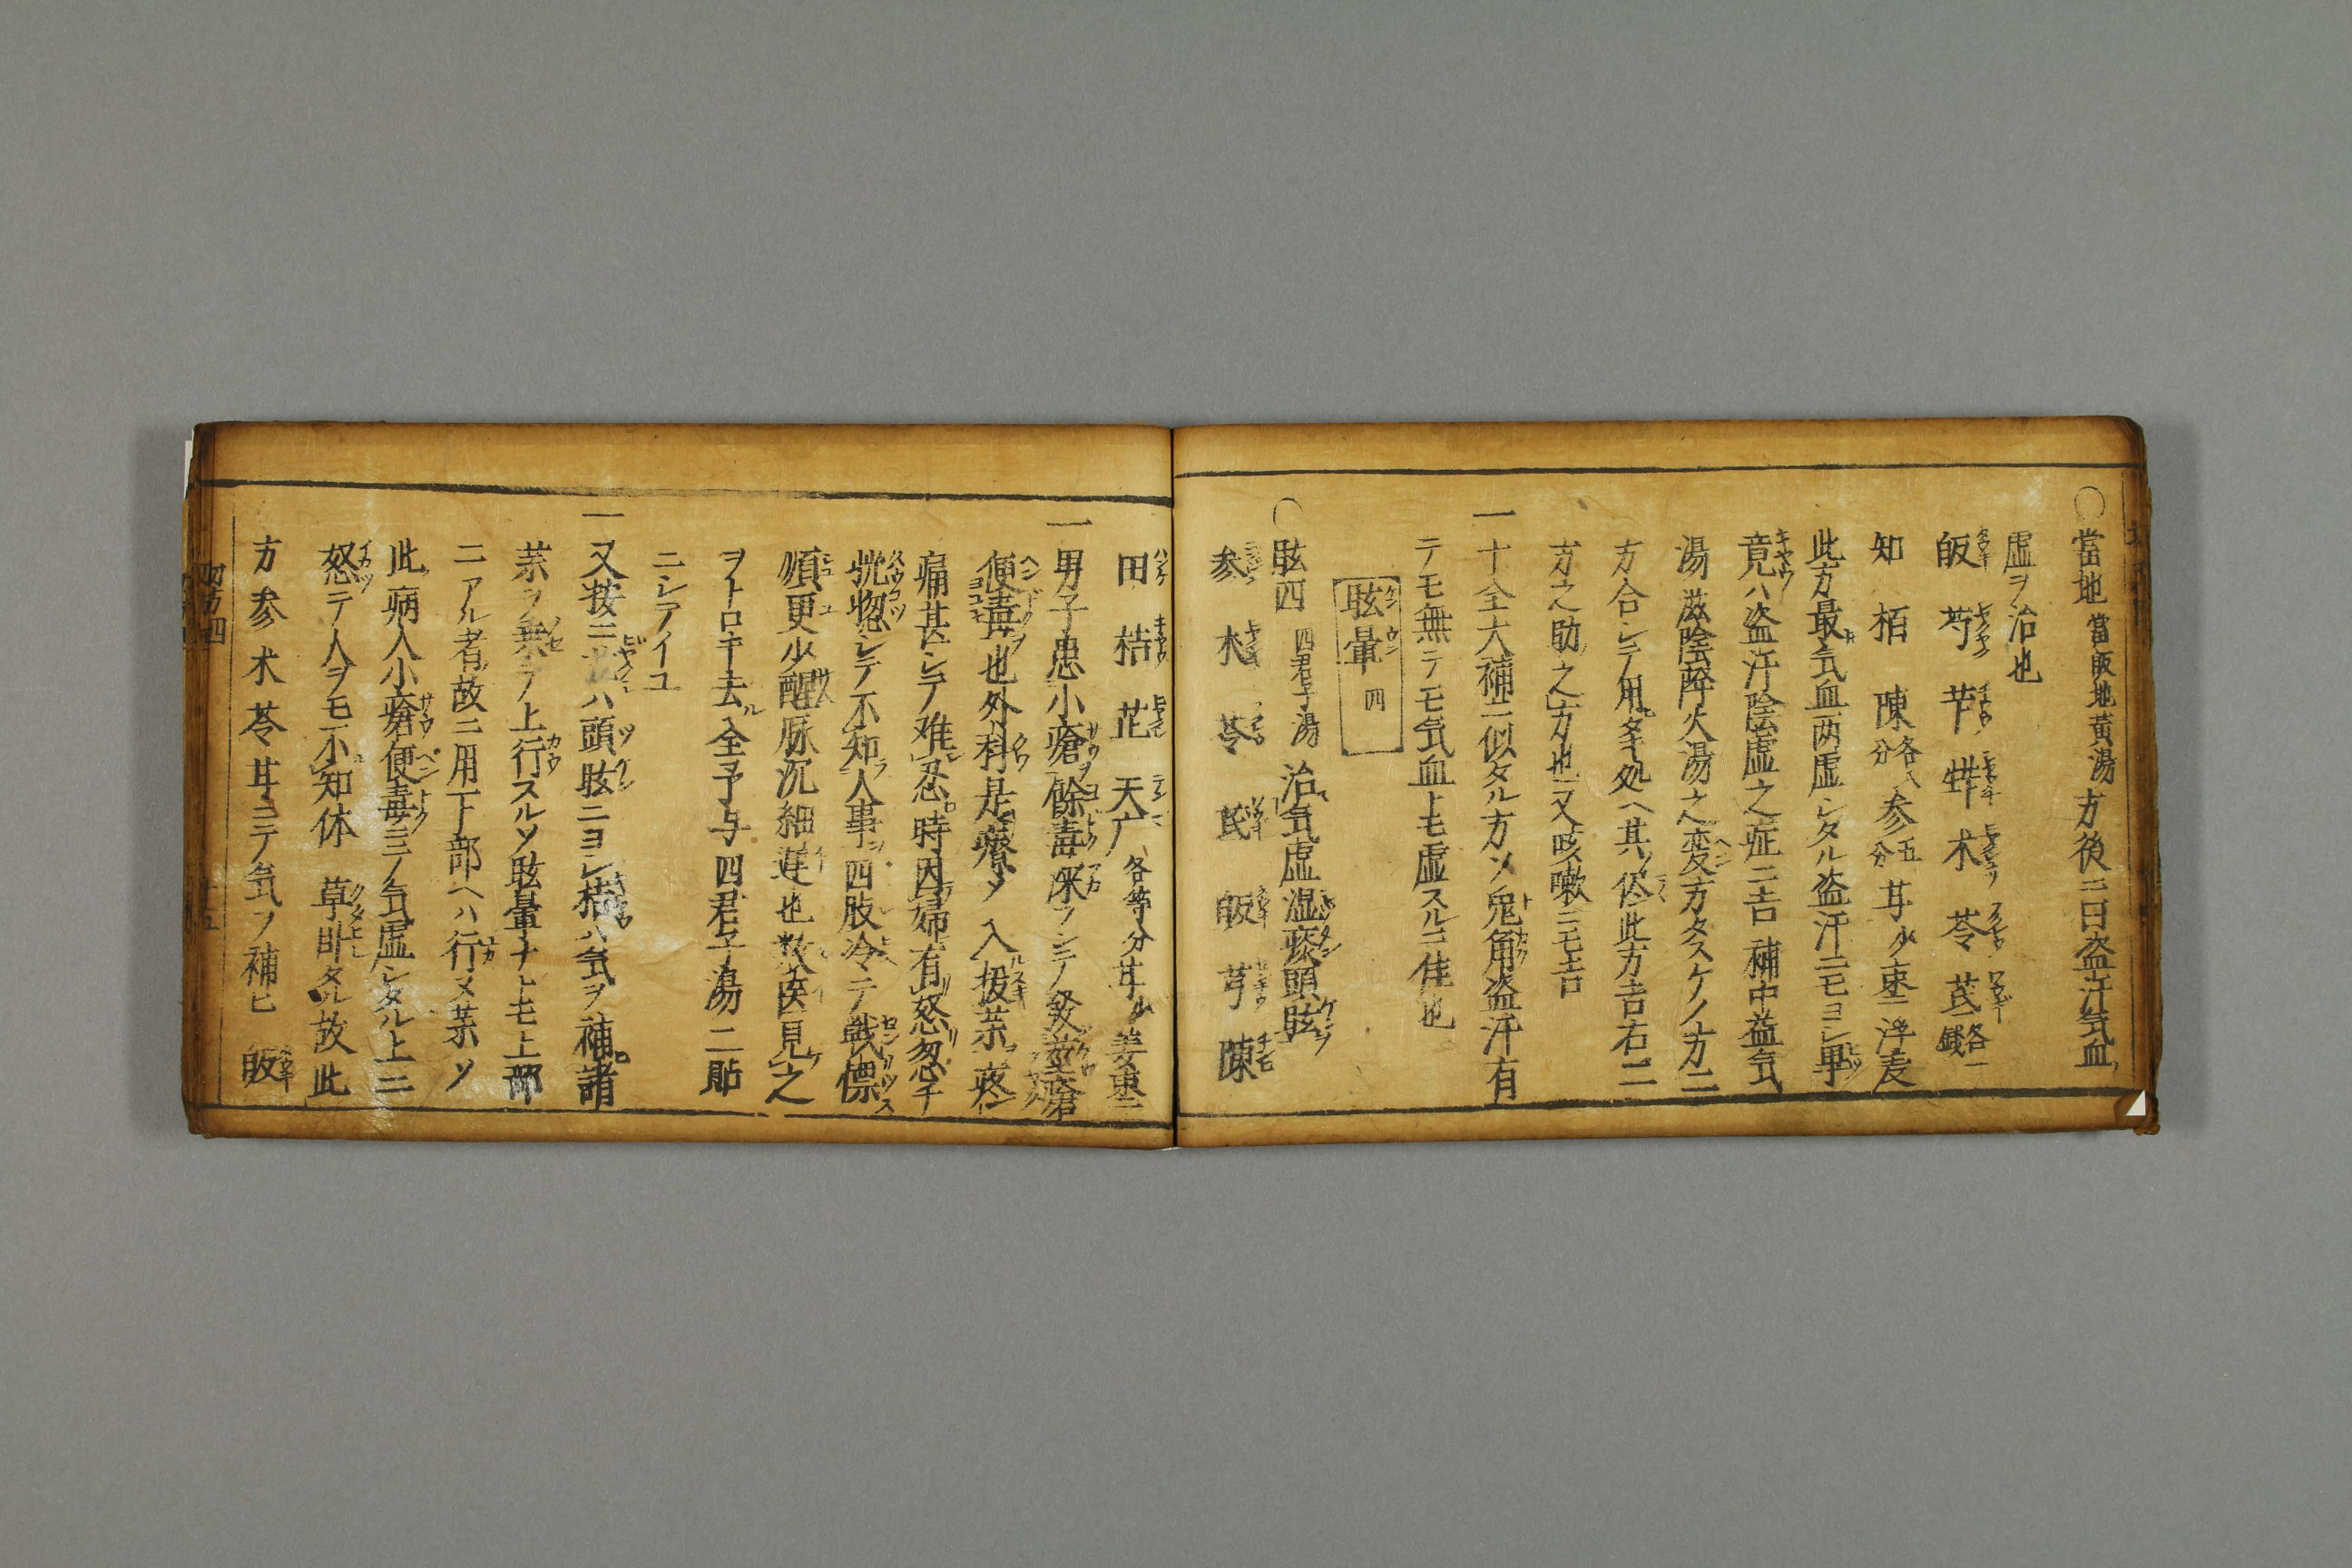 〇當地 當皈地黄湯 方後ニ曰盗汗気血
虚ヲ治也
皈 芍 芐 蛘 朮 苓 芪 各一銭
知 栢 陳 各八分 参 五分 甘少 棗二 浮麦
此方最気血両虚シタル盗汗ニモヨシ畢
竟ハ盗汗陰虚之症ニ吉補中益気
湯滋陰降火湯之変方タスケノ方ニ
方合シテ用タキ処ヘ其侭此方吉右二
方之助之方也又咳嗽ニモ吉
一十全大補ニ似タル方ソ鬼角盗汗有
テモ無テモ気血トモ虚スルニ佳也
眩暈 四
〇眩四 四君子湯 治気虚湿痰頭眩
参 朮 苓 芪 皈 芎 陳
田 桔 芷 天广 各等分 甘少 姜棗二
一男子患小瘡餘毒深フシテ發
便毒也外科是療メ入抜薬疼
痛甚シテ难忍時因婦有怒忽チ
恍惚シテ不知人事四肢冷テ戦慄
順更少醒脉沉細遅也数医見之
ヲトロキ去全予与四君子湯二貼
ニシテイユ
一又按ニハ頭眩ニヨシ桔ハ気ヲ補諸
茶ヲ乗テ上行スルソ眩暈ナトモ上部
ニアル者故ニ用下部ヘハ行ヌ茶ソ
此病人小瘡便毒ニテ気虚シタル上ニ
怒テ人ヲモ不知休 草臥タル故此
方参朮苓甘ニテ気ヲ補ヒ 皈
四方四
十五